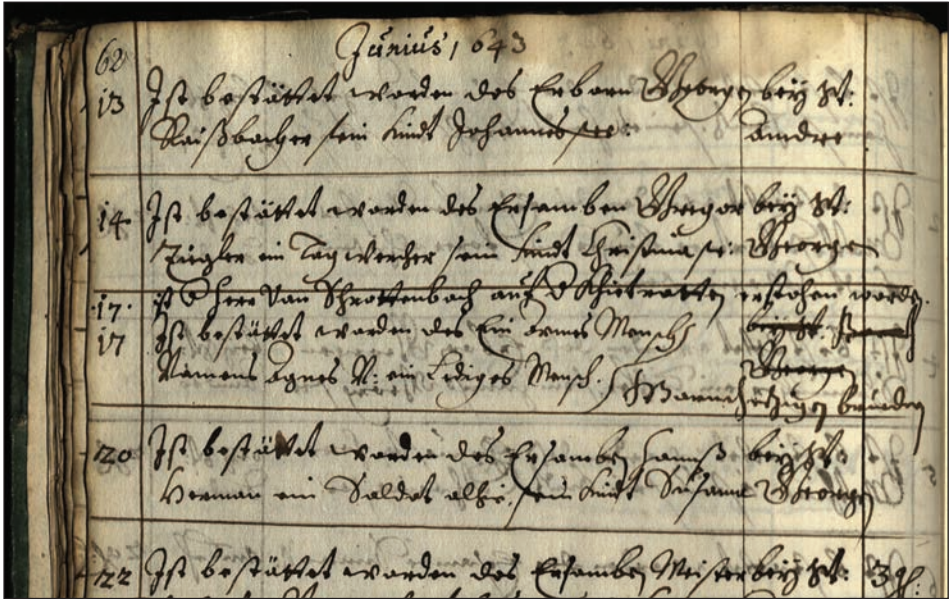 62 Junius 1643
13 Ist bestättet worden des Erbarn Georgen bey St:
Raißbacher sein Kindt Johannes
Andree
14. Ist bestättet worden des Ersamben Gregor bey St:
Ziegler ein Tagwercher sein Kindt Christina Georgen
17. ist Herr Van Schrottenbach auf erstochen worden.
17 Ist bestättet worden des Ein armes Mensch bey St.
Namens Agnes N: ein Lediges Mensch. Georgen
Barmhertzigen bruedern
20 Ist bestättet worden des Ersamben Hannß bey St:
Herman ein Soldat alhie, sein Kindt Susana Georgen
22 Ist bestättet worden des Ersamben Meister bey St: 3